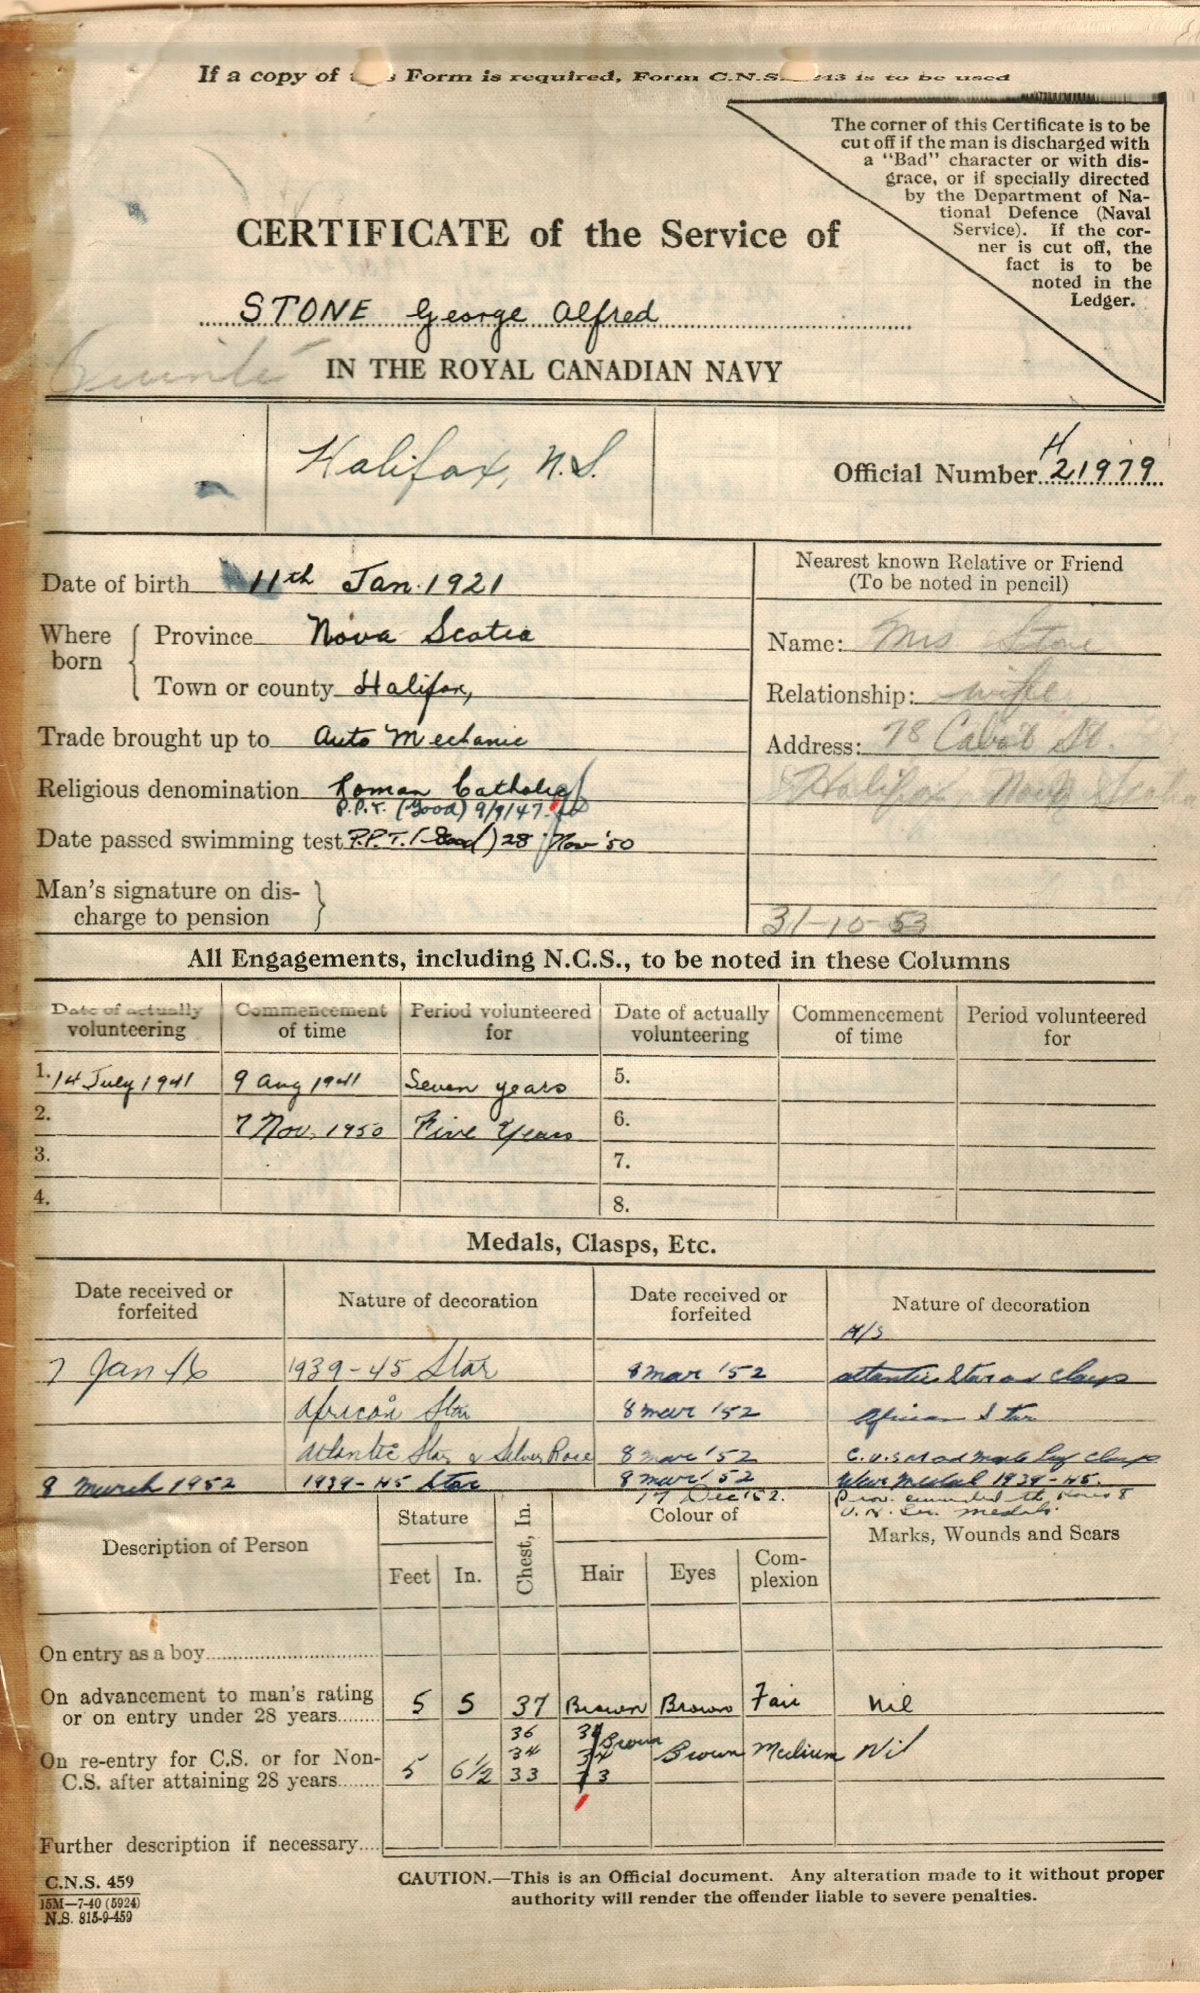 If a copy of this Form is required, Form C.N.S. is to be used
The corner of this Certificate is to be
cut off if the man is discharged with
a "Bad" character or with dis-
grace, or if specially directed
by the Department of Na-
tional Defence (Naval
Service). If the cor-
ner is cut off, the
fact is to be
noted in the
Ledger.
CERTIFICATE of the Service of
STONE George Alfred
IN THE ROYAL CANADIAN NAVY
Halifax, N.S.
Official Number H 21979
Date of birth 11th Jan. 1921
Where born
Province Nova Scotia
Town or county Halifax,
Trade brought up to Auto Mechanic
Religious denomination Roman Catholic
P.P.T. (Good) 9/9/47
Date passed swimming test P.P.T. (Good) 28 Nov '50
Man's signature on dis-
charge to pension
Nearest known Relative or Friend
(To be noted in pencil)
Name: Mrs. Stone
Relationship: wife
Address: 78 Cabot St.
Halifax Nova Scotia
31-10-53
All Engagements, including N.C.S., to be noted in these Columns
Date of actually volunteering Commencement of time Period volunteered for Date of actually volunteering Commencement of time Period volunteered for
1. 14 July 1941 9 Aug 1941 Seven years 5.
2. 7 Nov. 1950 Five Years 6.
3. 7.
4. 8.
Medals, Clasps, Etc.
Date received or forfeited Nature of decoration Date received or forfeited Nature of decoration
7 Jan 46 1939-45 Star 8 Mar '52 Atlantic Star and Clasp
African Star 8 Mar '52 African Star
Atlantic Star & Silver Rose 8 Mar '52 C.V.S.M. and Maple Leaf Clasp
8 March 1952 1939-45 Star 8 Mar '52 War Medal 1939-45.
17 Dec '52.
Description of Person Stature Chest, In. Colour of Marks, Wounds and Scars
Feet In. Hair Eyes Com-plexion
On entry as a boy
On advancement to man's rating
or on entry under 28 years 5 5 37 Brown Brown Fair Nil
36
34
On re-entry for C.S. or for Non-
C.S. after attaining 28 years 5 6½ 33 Brown Brown Medium Nil
Further description if necessary
C.N.S. 459
15M—7-40 (5924)
N.S. 815-9-459
CAUTION.—This is an Official document. Any alteration made to it without proper
authority will render the offender liable to severe penalties.